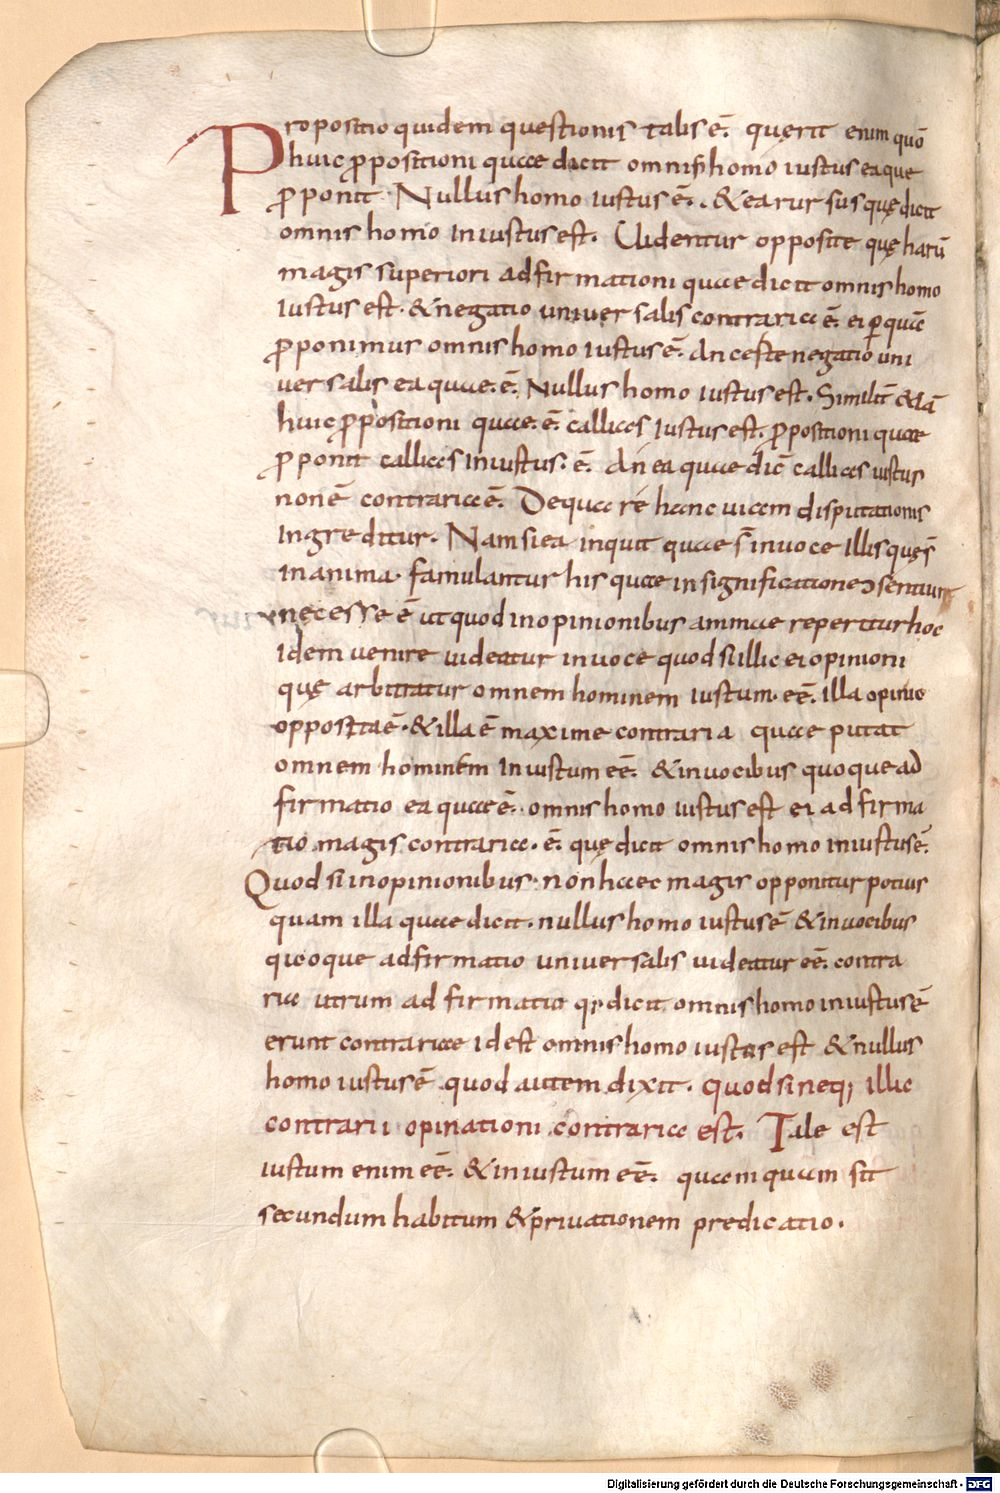 Propositio quidem questionis talis ē. quęrit enim quō
huic ꝓpositioni quae dicit omnis homo iustus ea que
ꝓponit. Nullus homo iustus ē. & ea rursus quę dicit
omnis homo iniustus est. Uidentur opposite quę harū
magis superiori adfirmationi quae dicit omnis homo
iustus est. & negatio uniuersalis contraria ē. ei ꝑ quāe
ꝓponimur omnis homo iustus ē. An ceste negatio uni
uersalis ea quae. ē. Nullus homo iustus est. Similit̄ & tā
huic ꝓpositioni quae. ē. callias iustus est. ꝓpositioni quae
ꝓponit callias iniustus. ē. An ea quae dic̄ callias iustus
non ē contraria ē. De qua re hanc uiam disputationis
ingreditur. Nam si ea inquit quae s̄ in uoce illis quęs̄
in anima. famulantur his quae in significatione ↄsentiunt
necesse ē ut quod in opinionibus animae reperitur hoc
idem uenire uideatur in uoce quod si illic ei opinioni
quę arbitratur omnem hominem iustum. eē. illa opinio
opposita ē. & illa ē maxime contraria quae putat
omnem hominem iniustum eē. & in uocibus quoque ad
firmatio ea quae ē. omnis homo iustus est ei adfirma
tio magis contraria. ē. quę dicit omnis homo iniustus ē.
Quod si in opinionibus. non haec magis opponitur potius
quam illa quae dicit. nullus homo iustus ē & in uocibus
quoque adfirmatio uniuersalis uideatur eē. contra
ria utrum adfirmatio qȩ dicit omnis homo iniustus ē
erunt contrariae id est omnis homo iustus est & nullus
homo iustus ē quod autem dixit. quod si neq; illic
contrarii opinationi contraria est. Tale est
iustum enim eē. & iniustum eē. quamquam sit
secundum habitum & priuationem predicatio.
Digitalisierung gefördert durch die Deutsche Forschungsgemeinschaft - DFG